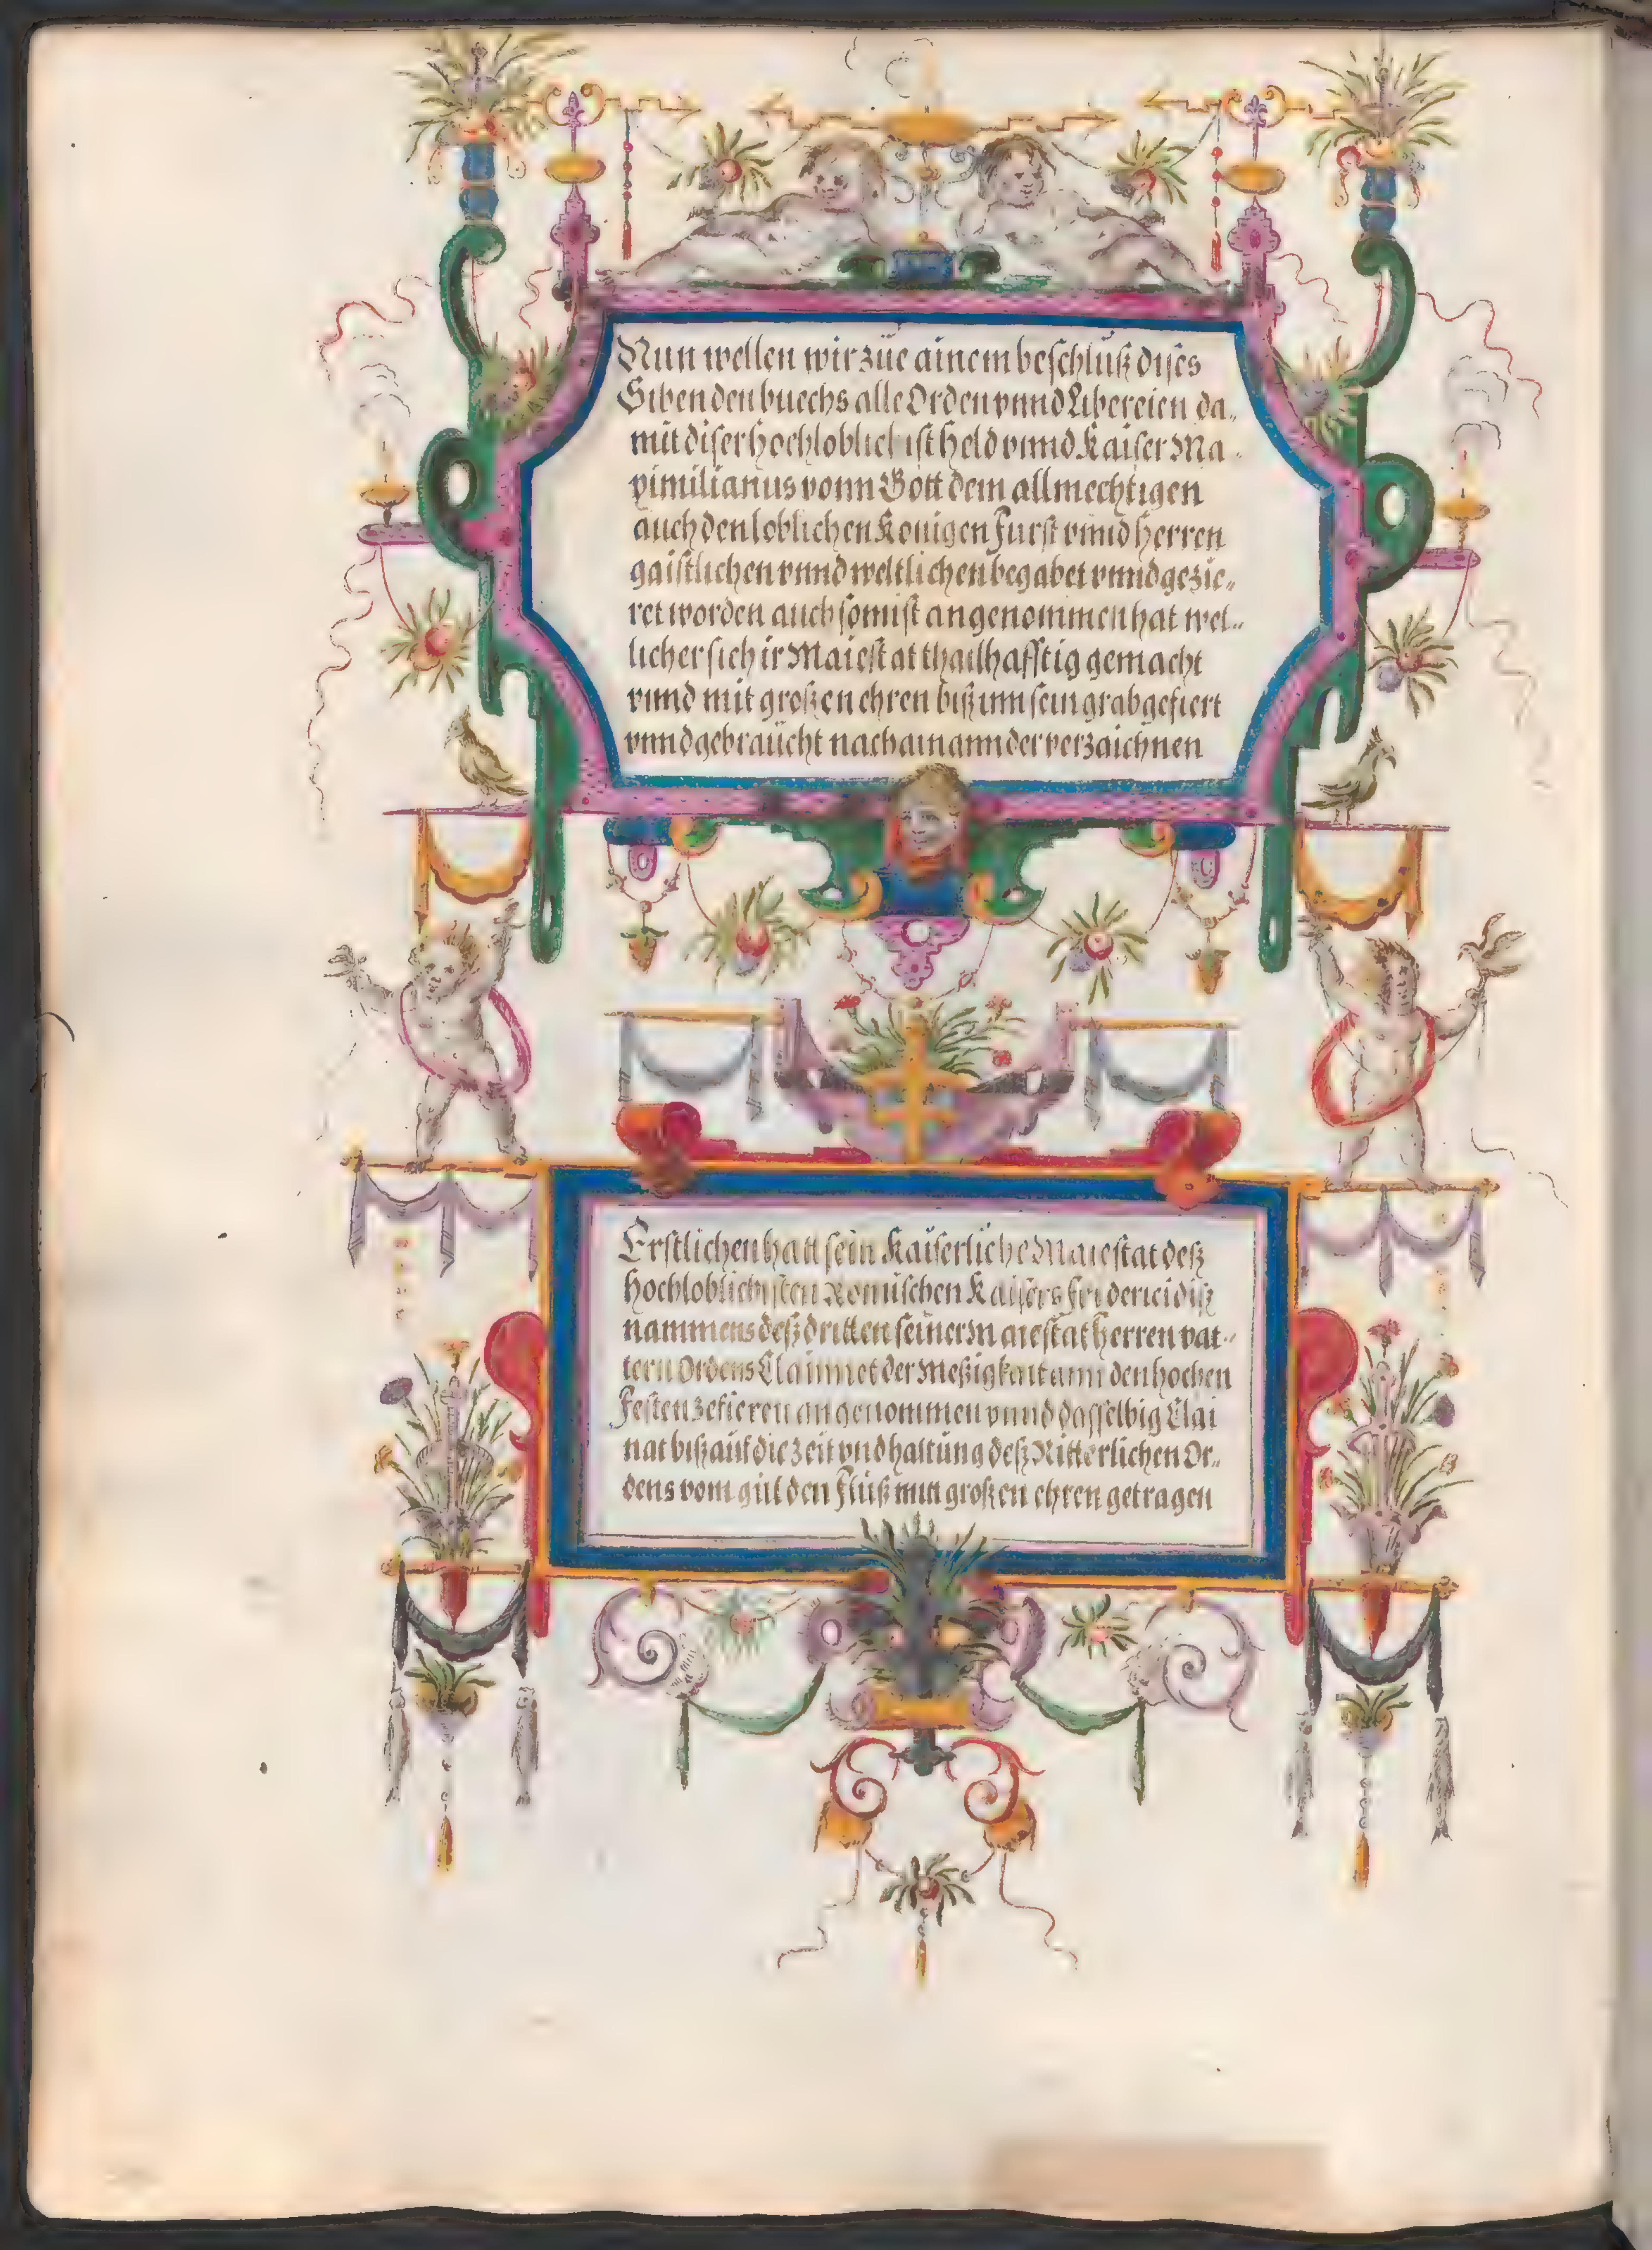 Nun wellen wir züe ainem beschlüß dises
Siben den buechs alle Orden vnnd Libereien da„
mit diser hochloblichist held vnnd Kaiser Ma„
ximilianus vonn Gott dem allmechtigen
auch den loblichen Konigen Furst vnnd herren
gaistlichen vnnd weltlichen begabet vnnd gezie„
ret worden auch sonnst angenommen hat wel„
licher sich ir Maiestat thailhafftig gemacht
vnnd mit großen ehren biß inn sein grab gefiert
vnnd gebraücht nach ainannder verzaichnen
Erstlichen hatt sein Kaiserliche Maiestat deß
hochloblichisten Romischen Kaisers Friderici diß
nammens deß dritten seiner Maiestat herren vat„
tern Ordens Clainnet der Meßigkait ann den hochen
Festen zefieren angenommen vnnd dasselbig Clai
nat biß auf die zeit vnd haltüng deß Ritterlichen Or„
dens vom gülden Flüß mitt großen ehren getragen